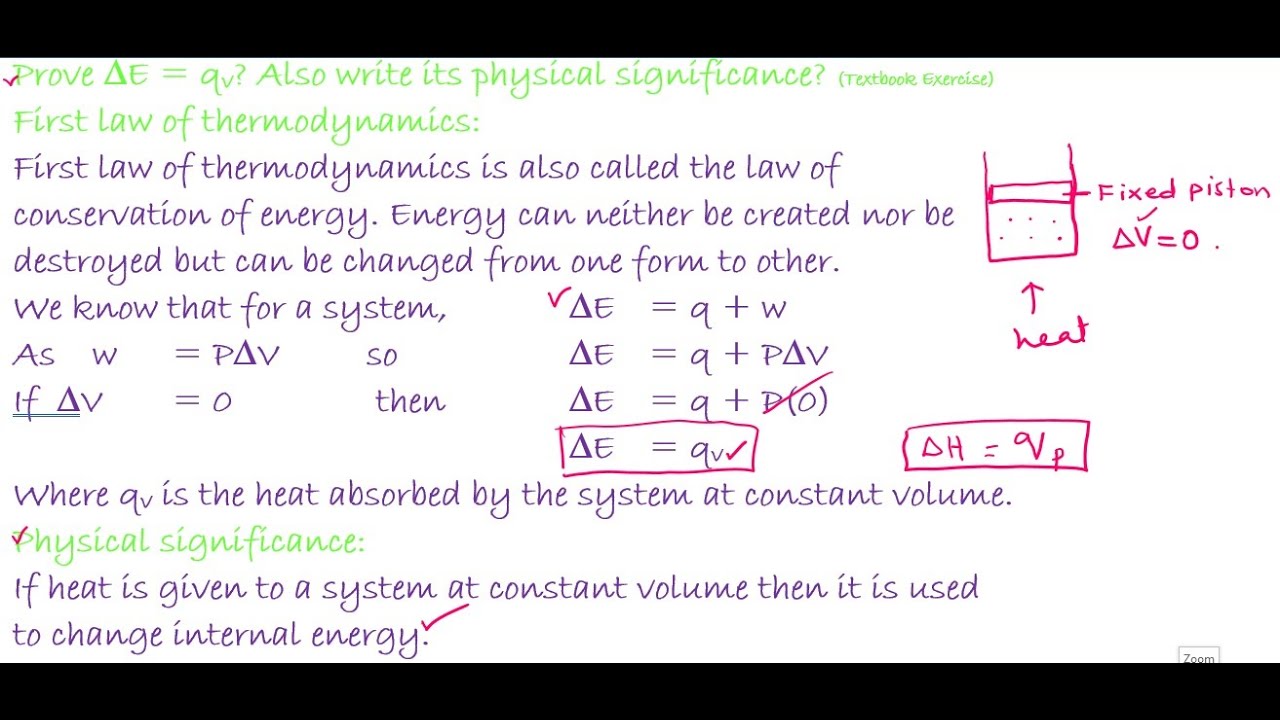 Prove ΔE = qv? Also write its physical significance? (Textbook Exercise)
First law of thermodynamics:
First law of thermodynamics is also called the law of
conservation of energy. Energy can neither be created nor be
destroyed but can be changed from one form to other.
We know that for a system, ΔE = q + w
As w = PΔV so ΔE = q + PΔV
If ΔV = 0 then ΔE = q + P(0)
ΔE = qv
Where qv is the heat absorbed by the system at constant volume.
Physical significance:
If heat is given to a system at constant volume then it is used
to change internal energy.
Fixed piston
ΔV = 0 .
heat
ΔH = qp
Zoom